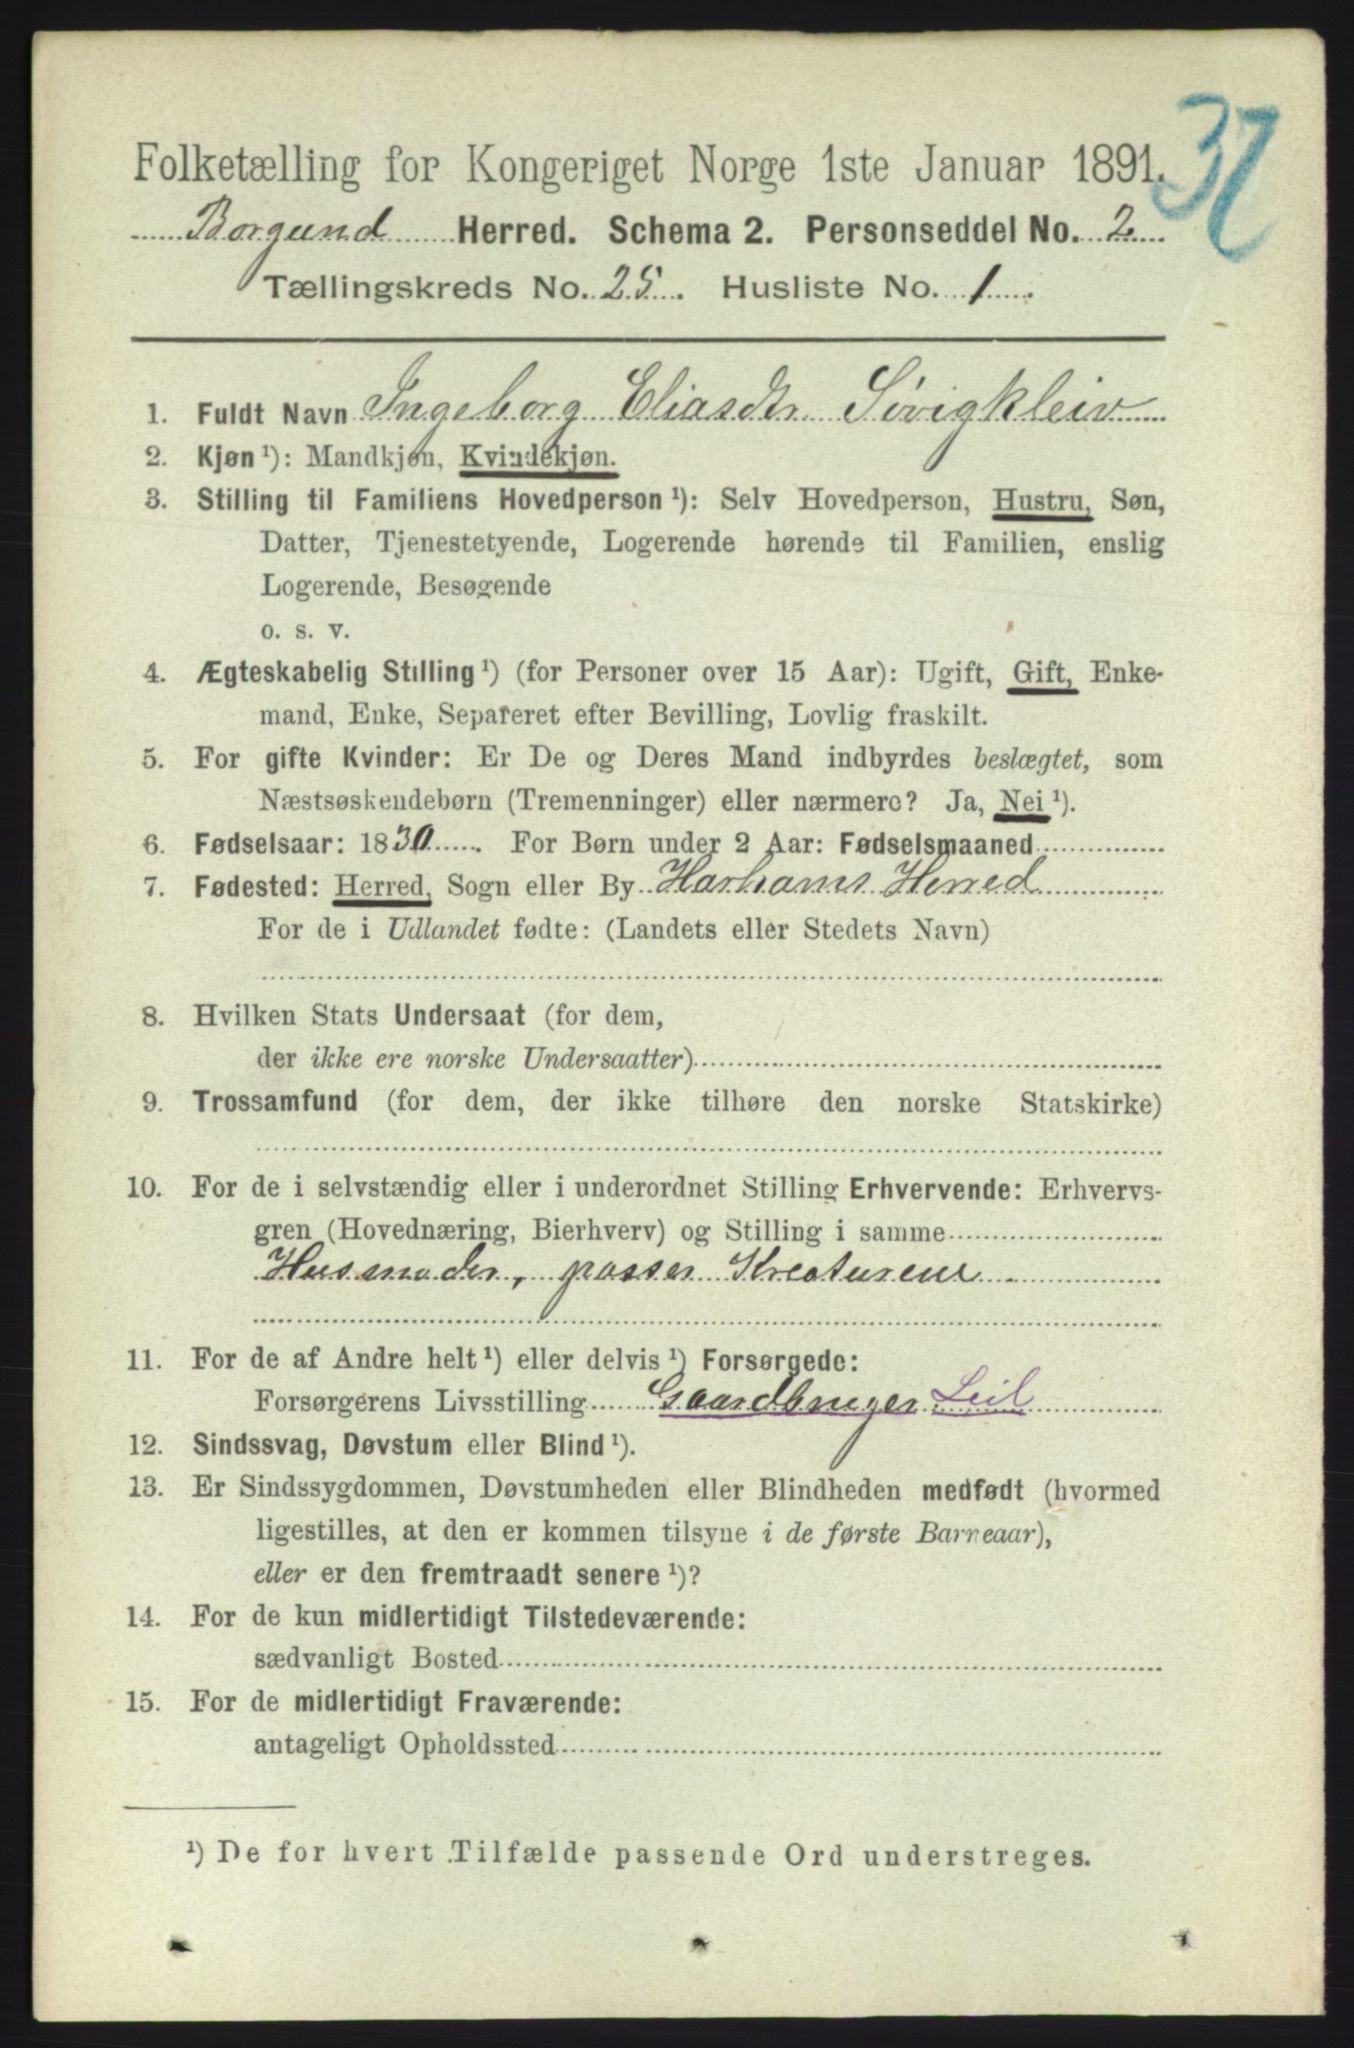 37
Folketælling for Kongeriget Norge 1ste Januar 1891.
Borgund Herred. Schema 2. Personseddel No. 2
Tællingskreds No. 25. Husliste No. 1.
1. Fuldt Navn Ingeborg Eliasdtr Søvigkleiv
2. Kjøn ¹): Mandkjøn, Kvindekjøn.
3. Stilling til Familiens Hovedperson ¹): Selv Hovedperson, Hustru, Søn,
Datter, Tjenestetyende, Logerende hørende til Familien, enslig
Logerende, Besøgende
o. s. v.
4. Ægteskabelig Stilling ¹) (for Personer over 15 Aar): Ugift, Gift, Enke-
mand, Enke, Separeret efter Bevilling, Lovlig fraskilt.
5. For gifte Kvinder: Er De og Deres Mand indbyrdes beslægtet, som
Næstsøskendebørn (Tremenninger) eller nærmere? Ja, Nei ¹).
6. Fødselsaar: 1830. For Børn under 2 Aar: Fødselsmaaned
7. Fødested: Herred, Sogn eller By Harhams Herred
For de i Udlandet fødte: (Landets eller Stedets Navn)
8. Hvilken Stats Undersaat (for dem,
der ikke ere norske Undersaatter)
9. Trossamfund (for dem, der ikke tilhøre den norske Statskirke)
10. For de i selvstændig eller i underordnet Stilling Erhvervende: Erhvervs-
gren (Hovednæring, Bierhverv) og Stilling i samme
Husmoder, passer Kreaturene
11. For de af Andre helt ¹) eller delvis ¹) Forsørgede:
Forsørgerens Livsstilling Gaardbruger Leil
12. Sindssvag, Døvstum eller Blind ¹).
13. Er Sindssygdommen, Døvstumheden eller Blindheden medfødt (hvormed
ligestilles, at den er kommen tilsyne i de første Barneaar),
eller er den fremtraadt senere ¹)?
14. For de kun midlertidigt Tilstedeværende:
sædvanligt Bosted
15. For de midlertidigt Fraværende:
antageligt Opholdssted
¹) De for hvert Tilfælde passende Ord understreges.